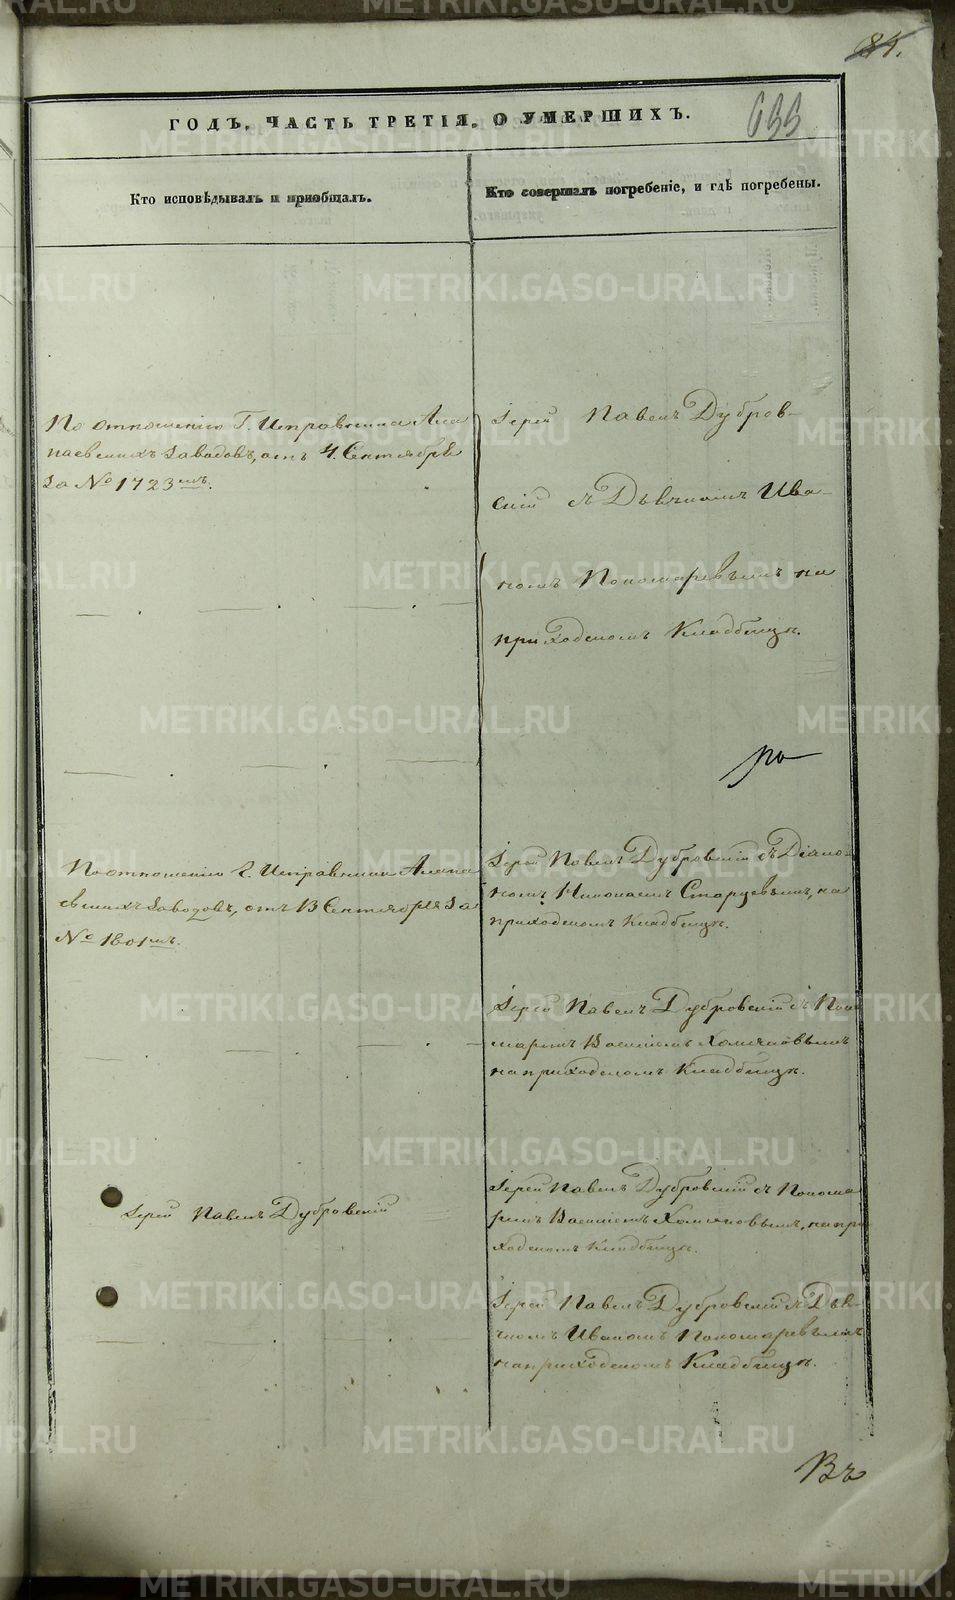 84.
633
ГОДЪ. ЧАСТЬ ТРЕТІЯ. О УМЕРШИХЪ.
Кто исповѣдывалъ и приобщалъ.
Кто совершалъ погребеніе, и гдѣ погребены.
По отношенію Г. Исправника Ала
паевскихъ Заводовъ, отъ 4 Сентября
За № 1723мъ.
Іерей Павелъ Дубров-
скій съ Дьячкомъ Ива-
номъ Пономаревымъ на
приходскомъ Кладбищѣ.
по
По отношенію Г. Исправника Алапа
евскихъ Заводовъ, отъ 13 Сентября За
№ 1801мъ.
Іерей Павелъ Дубровскій съ Діако-
номъ Николаемъ Старцевымъ, на
приходскомъ Кладбищѣ.
Іерей Павелъ Дубровскій съ Поно
маремъ Василіемъ Хомяковымъ
на приходскомъ Кладбищѣ.
Іерей Павелъ Дубровскій
Іерей Павелъ Дубровскій съ Понома
ремъ Василіемъ Хомяковымъ, на при
ходскомъ Кладбищѣ.
Іерей Павелъ Дубровскій съ Дья-
чкомъ Иваномъ Пономаревымъ
на приходскомъ Кладбищѣ.
Въ
METRIKI.GASO-URAL.RU